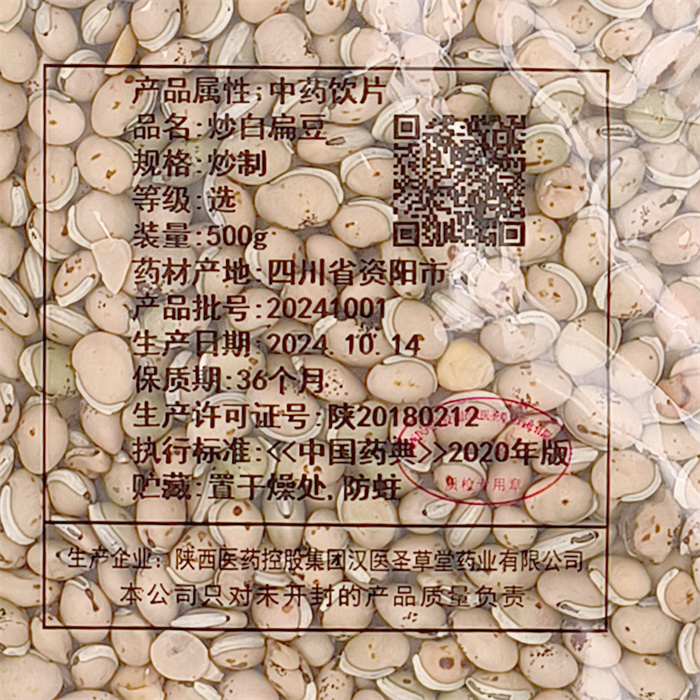 产品属性:中药饮片
品名:炒白扁豆
规格:炒制
等级:选
装量:500g
药材产地:四川省资阳市
产品批号:20241001
生产日期:2024.10.14
保质期:36个月
生产许可证号:陕20180212
执行标准:<<中国药典>>2020年版
贮藏:置干燥处,防蛀
质检专用章
生产企业:陕西医药控股集团汉医圣草堂药业有限公司
本公司只对未开封的产品质量负责